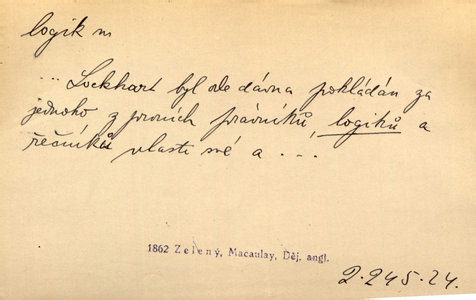 logik m
... Lockhart byl ode dávna pokládán za
jednoho z prvních právníků, logiků a
řečníků vlasti své a ...
1862 Zelený, Macaulay, Děj. angl.
2.245.24.